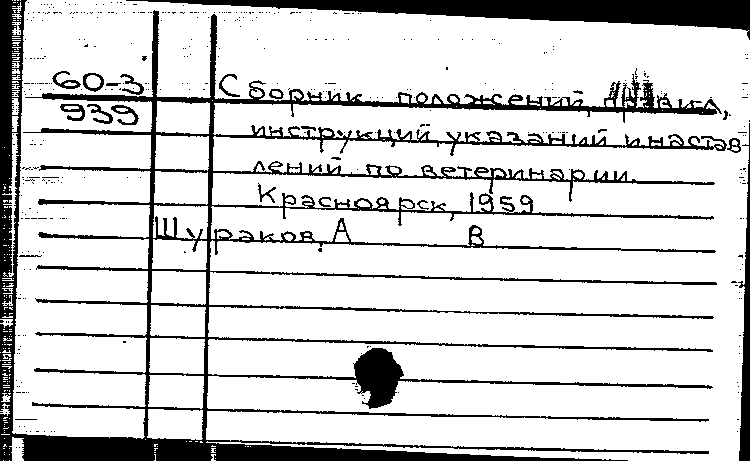 60-3 Сборник положений, правил,
939
инструкций, указаний и настав
лений по ветеринарии.
Красноярск, 1959
Шураков, А В